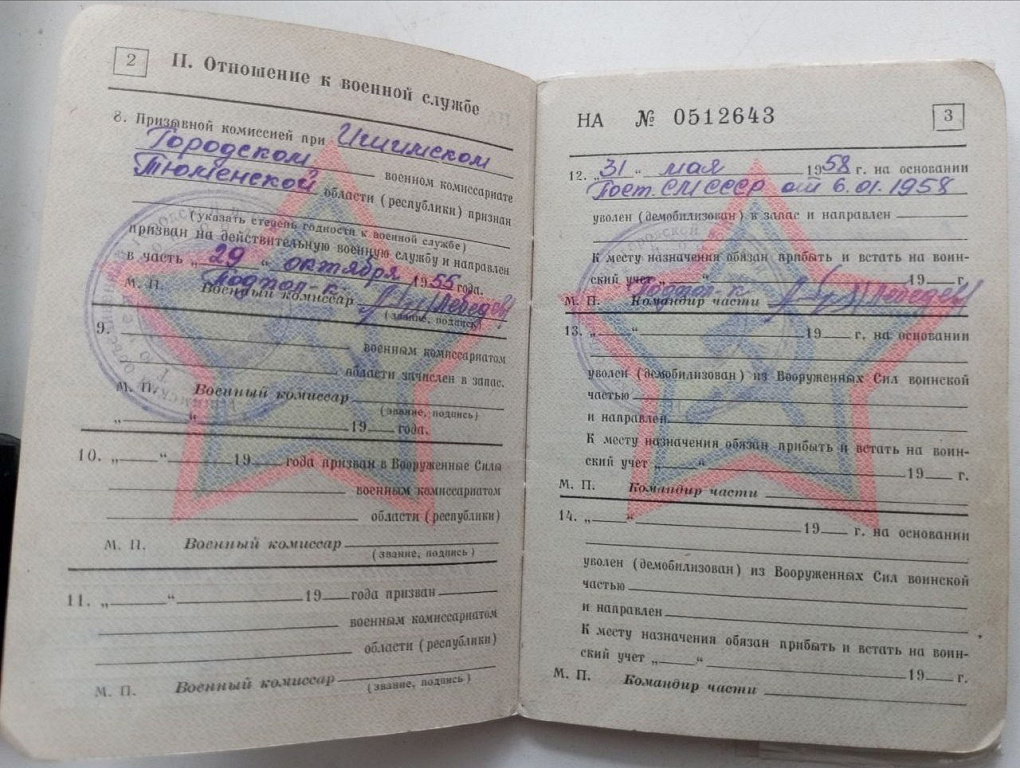 2
II. Отношение к военной службе
8. Призывной комиссией при Ишимском
Городском военном комиссариате
Тюменской области (республики) признан
(указать степень годности к военной службе)
призван на действительную военную службу и направлен
в часть „29“ октября 1955 года.
Подпол-к
М. П. Военный комиссар Лебедев
(звание, подпись)
9.
военным комиссариатом
области зачислен в запас.
М. П. Военный комиссар
(звание, подпись)
„ “ 19 года.
10. „ “ 19 года призван в Вооруженные Силы
военным комиссариатом
области (республики)
М. П. Военный комиссар
(звание, подпись)
11. „ “ 19 года призван
военным комиссариатом
области (республики)
М. П. Военный комиссар
(звание, подпись)
НА № 0512643
3
12. „31“ мая 1958 г. на основании
Пост. СМ СССР от 6.01.1958
уволен (демобилизован) в запас и направлен
К месту назначения обязан прибыть и встать на воин-
ский учет „ “ 19 г.
Подпол-к Лебедев
М. П. Командир части
13. „ “ 19 г. на основании
уволен (демобилизован) из Вооруженных Сил воинской
частью
и направлен
К месту назначения обязан прибыть и встать на воин-
ский учет „ “ 19 г.
М. П. Командир части
14. „ “ 19 г. на основании
уволен (демобилизован) из Вооруженных Сил воинской
частью
и направлен
К месту назначения обязан прибыть и встать на воин-
ский учет „ “ 19 г.
М. П. Командир части